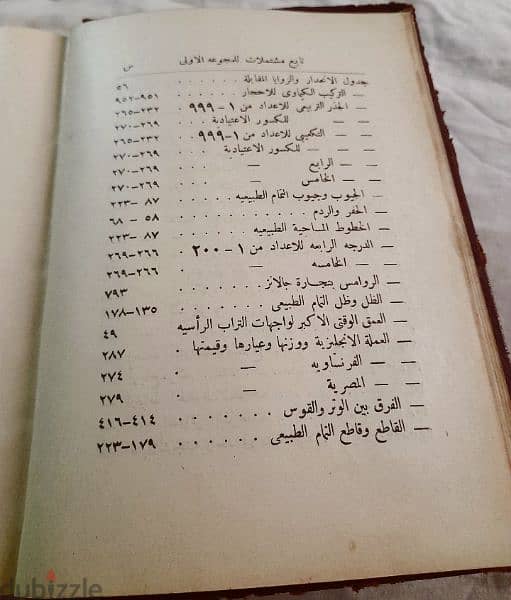 تابع مشتملات للمجموعه الاولى س
جدول الانحدار والزوايا المقابلة . . . . . . ٥٦
— التركيب الكيماوى للاحجار . . . . . ٩٥١–٩٥٢
— الجذر التربيعى للاعداد من ١ – ٩٩٩ . ٢٣٢–٢٦٥
— — للكسور الاعتيادية . . . ٢٦٩–٢٧٠
— — التكعيبى للاعداد من ١–٩٩٩ . ٢٣٢–٢٦٥
— — — للكسور الاعتيادية . . . ٢٦٩–٢٧٠
— — الرابع — . . ٢٦٩–٢٧٠
— — الخامس — . . ٢٦٩–٢٧٠
— الجيوب وجيوب التمام الطبيعيه . . . . . ٨٧ –٢٢٣
— الحفر والردم . . . . . . . . ٥٨ – ٦٨
— الخطوط المساحية الطبيعيه . . . . . ٨٧ –٢٢٣
— الدرجه الرابعه للاعداد من ١ – ٢٠٠ . . ٢٦٦–٢٦٩
— — الخامسه — . . ٢٦٦–٢٦٩
— الروامس بتجارة جالانز . . . . . . ٧٩٣
— الظل وظل التمام الطبيعى . . . . . . . ١٣٥–١٧٨
— العمق الوقتى الاكبر لواجهات التراب الرأسيه ٤٩
— العملة الانجليزية ووزنها وعيارها وقيمتها . ٢٨٧
— — الفرنساويه — . ٢٧٤
— — المصرية — . ٢٧٩
— الفرق بين الوتر والقوس . . . . . . . ٤١٤–٤١٦
— القاطع وقاطع التمام الطبيعى . . . . . . ١٧٩–٢٢٣
dubizzle